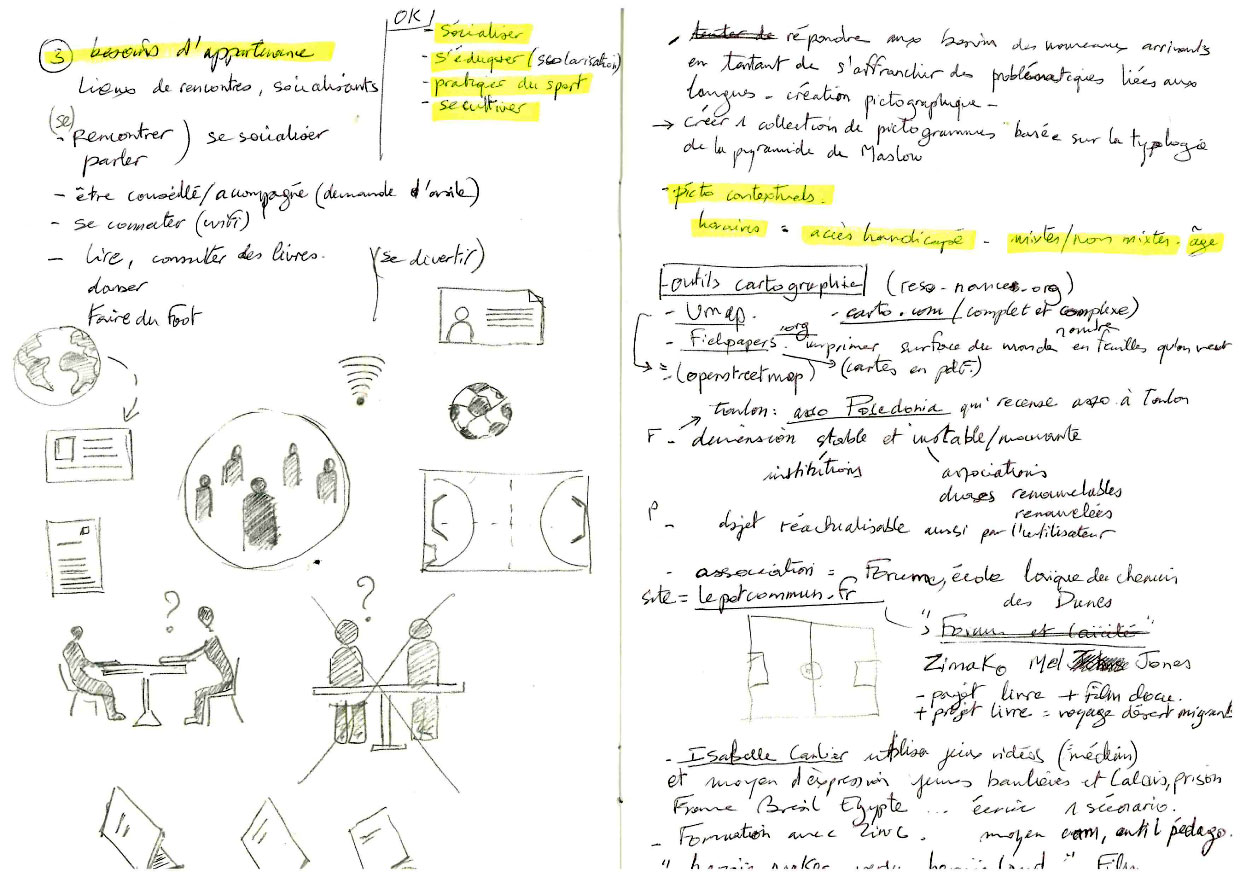 3 besoins d'appartenance
Lieux de rencontres, socialisants
(se)
- Rencontrer ) se socialiser
parler
- être conseillé/acompagné (demande d'asile)
- se connecter (wifi)
- Lire, consulter des livres.
danser
Faire du Foot
(se divertir)
OK !
- Socialiser
- s'éduquer (scolarisation)
- pratiquer du sport
- se cultiver
?
?
tenter de répondre aux besoins des nouveaux arrivants
en tentant de s'affranchir des problématiques liées aux
langues - création pictographique -
→ créer 1 collection de pictogrammes basée sur la typologie
de la pyramide de Maslow
- picto contextuels.
horaires = accès handicapé - mixtes/non mixtes - âge
- outils cartographie (reso-nances.org)
- Umap. - carto.com (complet et complexe)
- Fieldpapers.org imprimer surface du monde en nombre feuilles qu'on veut
= (openstreetmap) → (cartes en pdf.)
→ toulon : asso Posedonia qui recense asso à Toulon
F - dimension stable et instable/mouvante
institutions associations
choses renouvelables
renouvelées
P - objet réactualisable aussi par l'utilisateur
- association = Forum, école laïque du chemin
des Dunes
site = lepotcommun.fr
"Forum et laïcité"
Zimako Mel Jones
- projet livre + Film docu.
+ projet livre = voyage désert migrant
- Isabelle utilise jeux vidéos (médium)
et moyen d'expression jeunes banlieues et Calais, prison
France Brésil Egypte ... écrire 1 scénario.
- Formation avec ZINC. moyen com, outil pédago.
" Film